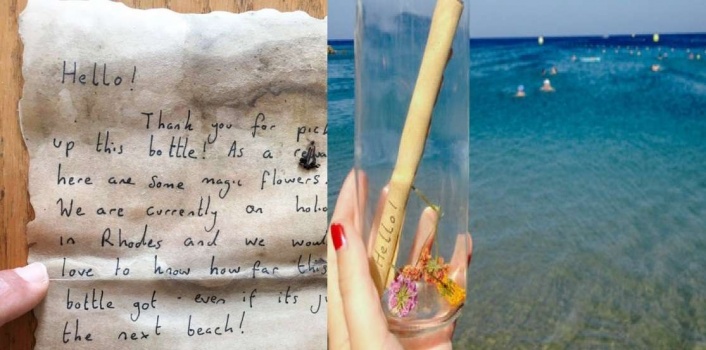 Hello!
Thank you for pic
up this bottle! As a
here are some magic flowers.
We are currently on holi
in Rhodes and we wou
love to know how far this
bottle got - even if its ju
the next beach!
Hello!